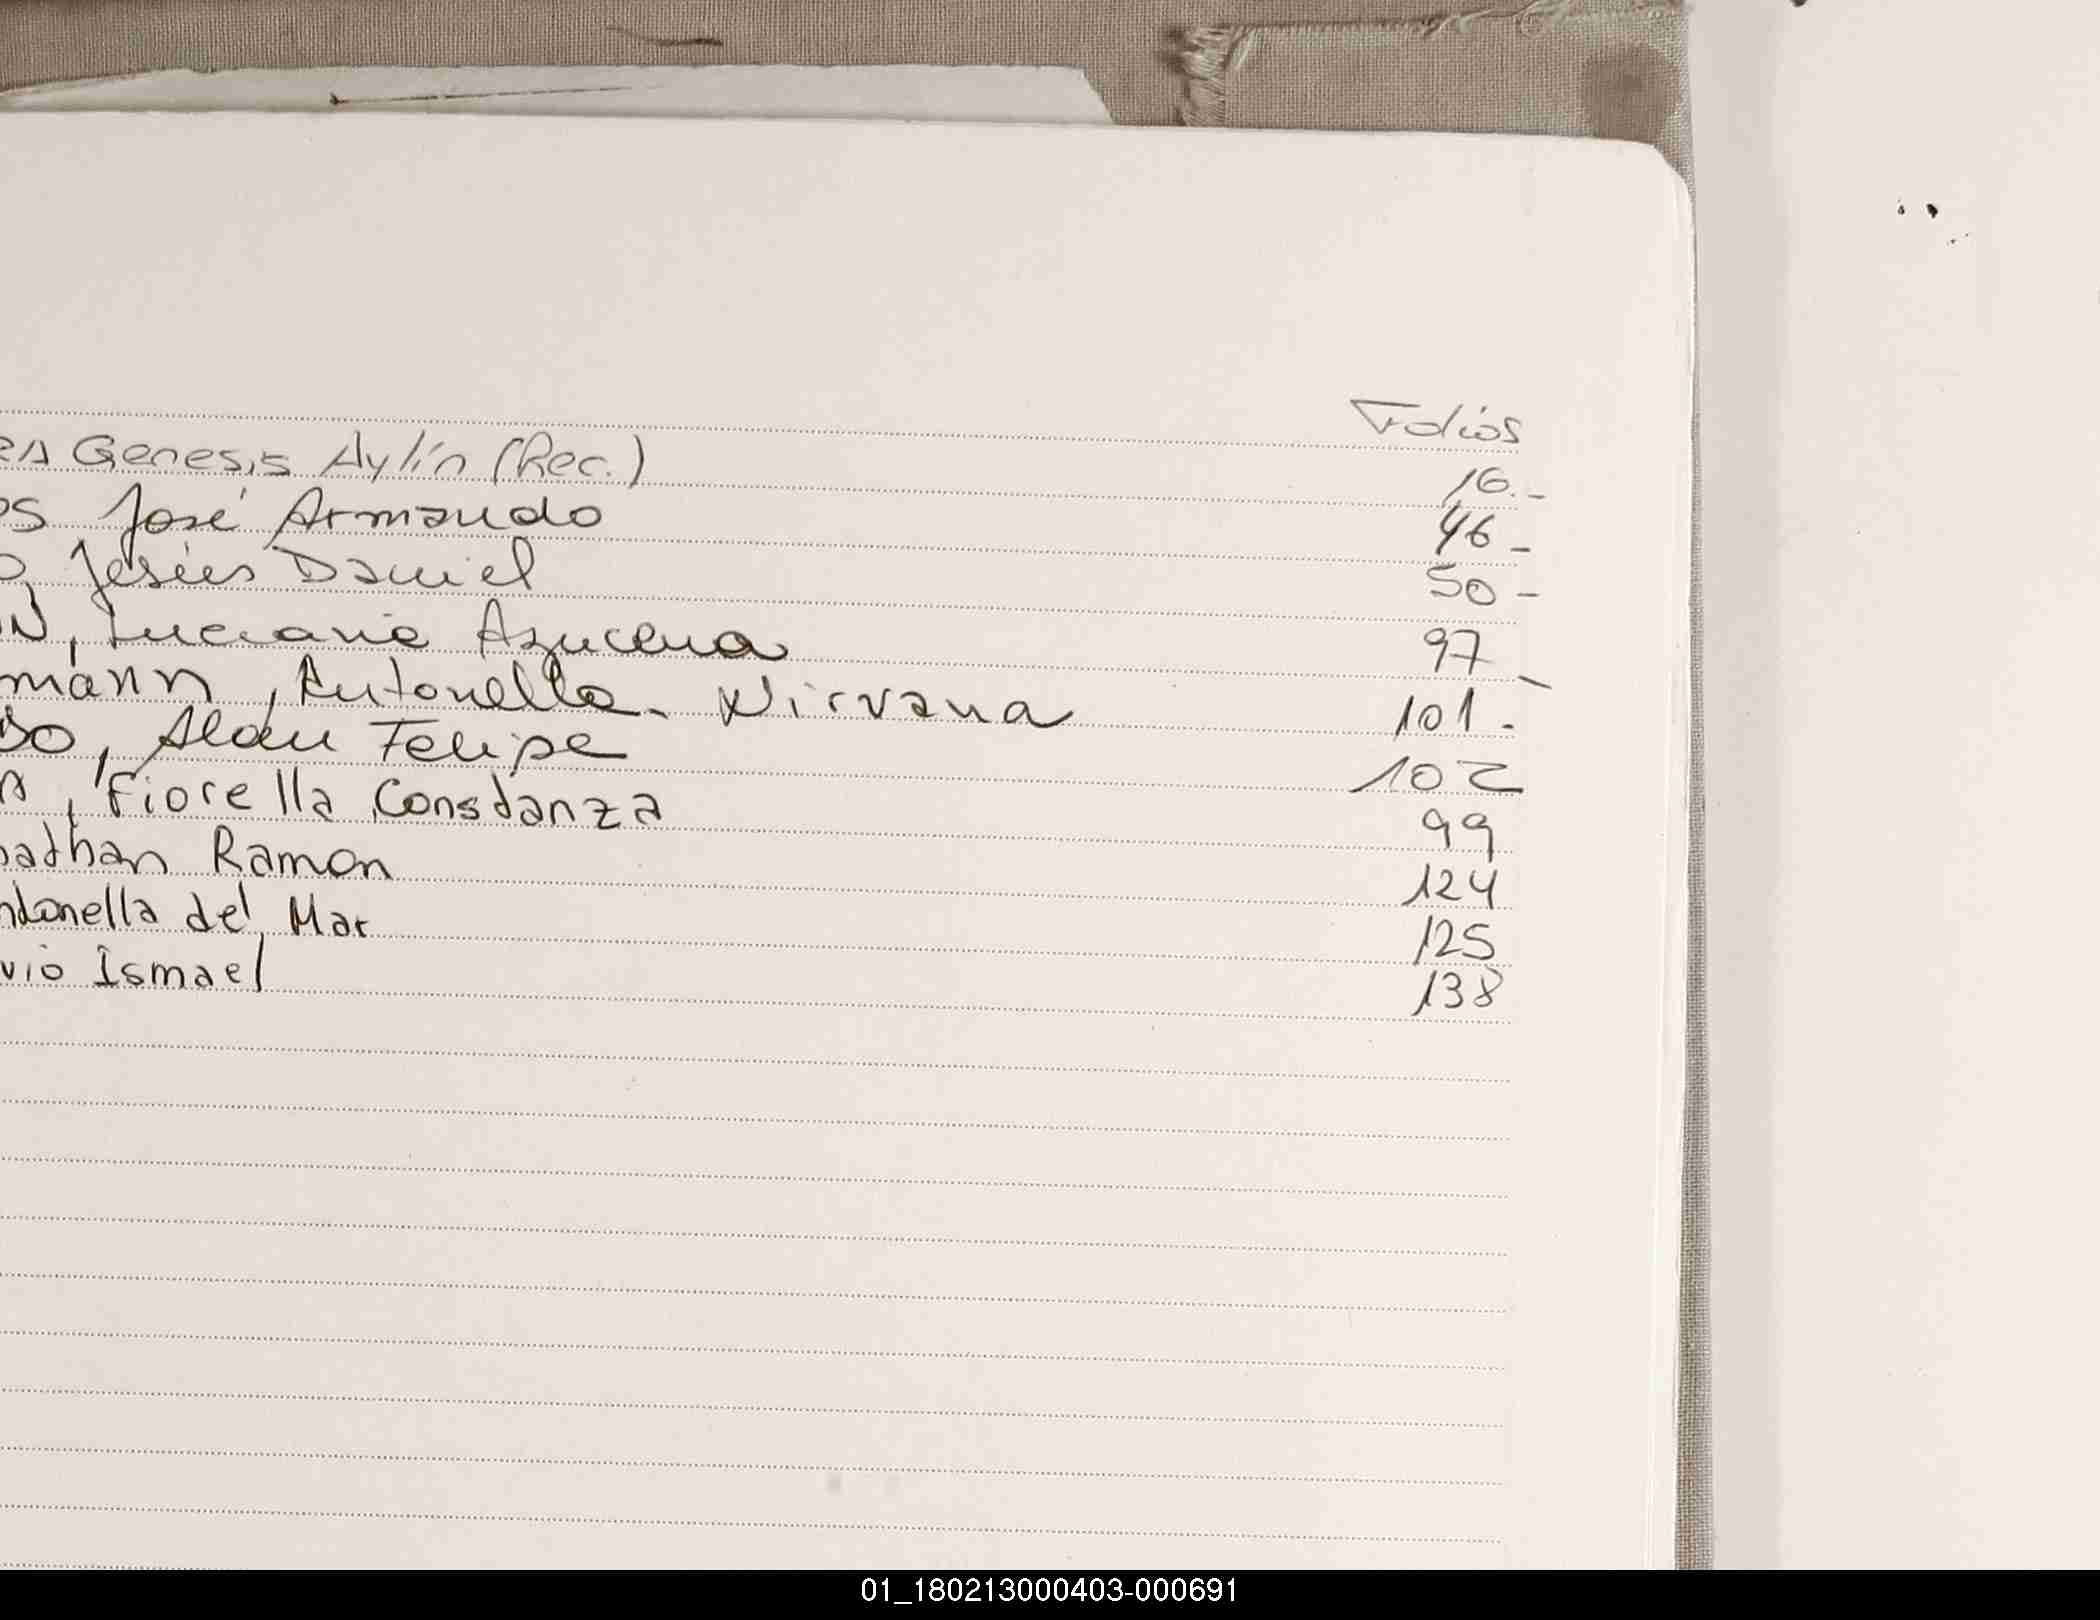 Folios
Genesis Aylín (Rec.) 16.-
José Armando 46-
Jesús Daniel 50-
Luciana Azucena 97-
Antonella Nirvana 101.-
Felipe 102
Fiorella Constanza 99
Ramon 124
del Mar 125
Ismael 138
01_180213000403-000691